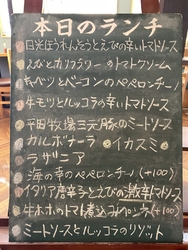 本日のランチ
日光ほうれんそうとえびの辛いトマトソース
えびとカリフラワーのトマトクリーム
キャベツとベーコンのペペロンチーノ
牛モツとルッコラの辛いトマトソース
平田牧場三元豚のミートソース
カルボナーラ イカスミ
ラザニア
海の幸のペペロンチーノ(+100)
イタリア唐辛子とえびの激辛トマトソース
牛ホホのトマト煮込み ペンネ(+100)
ミートソースとルッコラのリゾット